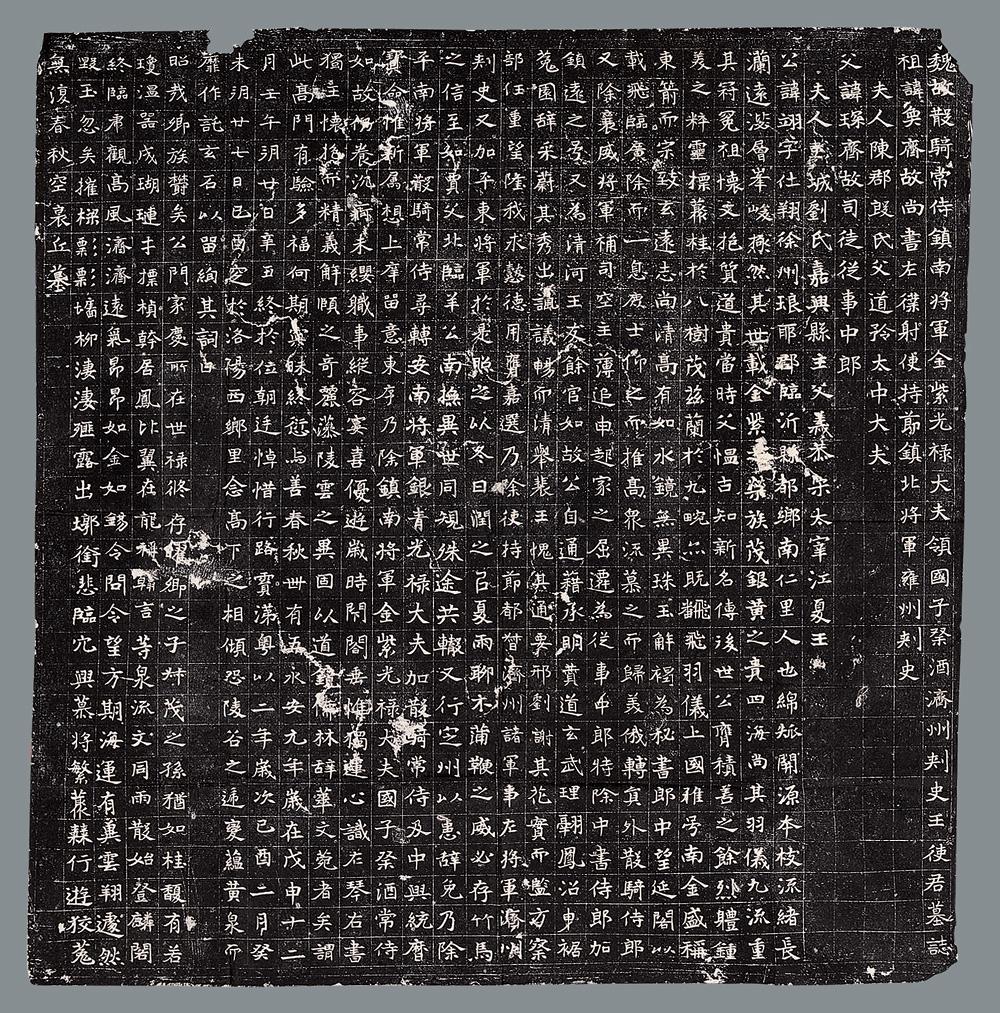 魏故散騎常侍鎮南將軍金紫光祿大夫領國子祭酒濟州刾史王使君墓誌
祖諱奐齊故尚書左僕射使持節鎮北將軍雍州刾史
夫人陳郡殷氏父道矜太中大夫
父諱琛齊故司徒從事中郎
夫人彭城劉氏嘉興縣主父義恭宋太宰江夏王
公諱翊字仕翔徐州琅耶郡臨沂縣都鄉南仁里人也綿邈開源本枝流緒長
瀾遠濬層峯峻極然其世載金紫榮族茂銀黃之貴四海尚其羽儀九流重
其冠冕祖懷文抱質道貴當時父愠古知新名傳後世公膺積善之餘烈體鍾
美之粹靈摽藂桂於八樹茂兹蘭於九畹亦既飜飛羽儀上國稚号南金盛稱
東箭而宗致玄遠志尚清高有如水鏡無異珠玉解褐為秘書郎中望延閣以
載飛臨廣除而一息庶士仰之而推高衆流慕之而歸美俄轉員外散騎侍郎
又除襄威將軍補司空主薄追申起家之屈遷為從事中郎特除中書侍郎加
鎮遠之号又為清河王友餘官如故公自通籍承明賁道玄武理翮鳳沼申裾
菟園辞采蔚其秀出諷議暢而清舉裴王愧其通要邢劉謝其花實而監方察
部任重望隆我求懿德用膺嘉選乃除使持節都督濟州諸軍事左將軍濟州
刾史又加平東將軍於是煦之以冬日潤之以夏雨聊木蒲鞭之威必存竹馬
之信至如賈父北臨羊公南撫異世同規殊途共轍又行定州以辞免乃除
平南將軍散騎常侍尋轉安南將軍銀青光祿大夫加散騎常侍及中興統曆
寶命惟新属想上庠留意東序乃除鎮南將軍金紫光祿大夫國子祭酒常侍
如故卷沉痾未纓職事縱容宴喜優遊歲時閇閤垂帷獨運心識左琴右書
獨主懷抱而精義解頤之奇麗藻陵雲之異固以道鏡儒林辞華文菀者矣謂
此高門有驗多福何期與昧終愆与善春秋卌有五永安元年歲在戊申十二
月壬午朔廿日辛丑終於位朝廷悼惜行路賷滿粤以二年歲次己酉二月癸
未朔廿七日己酉窆於洛陽西鄉里念高下之相傾恐陵谷之遞褰蘊黃泉而
靡作託玄石以留絢其詞曰
昭哉鄉族欝矣公門家慶所在世祿攸存卿之子茂之孫猶如桂馥有若
瓊温器成瑚璉才摽楨幹居鳳比翼在龍稱翰言等泉流文同雨散始登麟閣
終臨肅觀高風濟濟遠氣昂昂如金如錫令問令望方期海運有冀雲翔遽然
毁玉忽矣摧樑飄飄墻柳淒淒殲露出墎銜悲臨穴興慕將繁藂棘行遊狡菟
無復春秋空哀丘墓